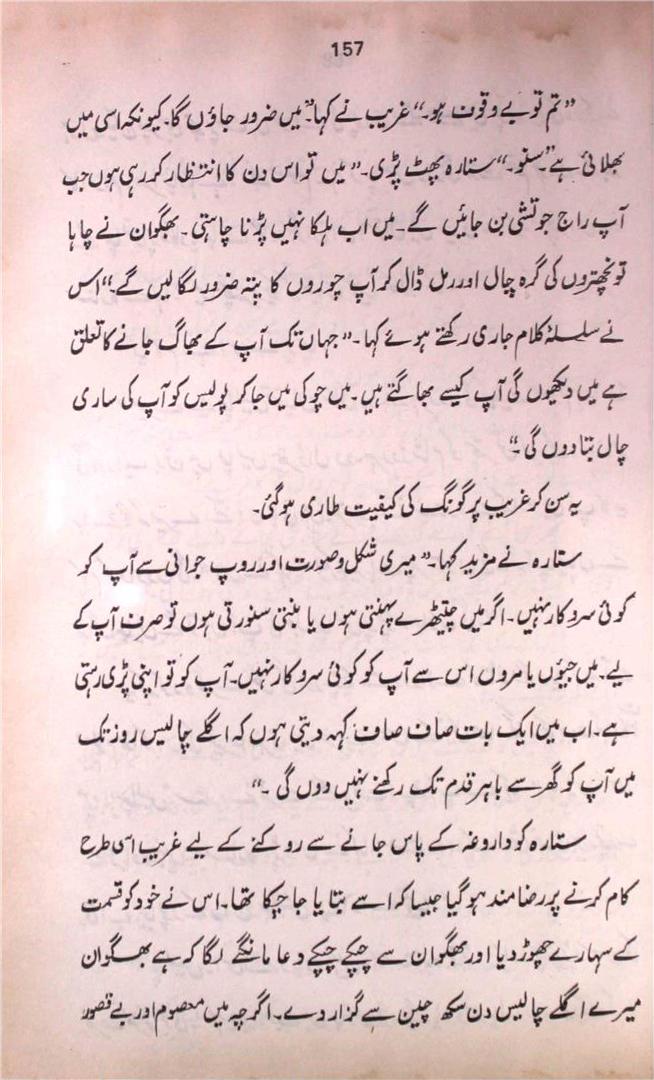 157
”تم تو بے وقوف ہو۔“ غریب نے کہا۔ ”میں ضرور جاؤں گا۔ کیونکہ اسی میں
بھلائی ہے“۔ ”سنو۔“ ستارہ پھٹ پڑی۔ ”میں تو اس دن کا انتظار کر رہی ہوں جب
آپ راج جوتشی بن جائیں گے۔ میں اب ہلکا نہیں پڑنا چاہتی۔ بھگوان نے چاہا
تو نچھتروں کی گرہ چال اور رمل ڈال کر آپ چوروں کا پتہ ضرور لگا لیں گے۔“ اس
نے سلسلۂ کلام جاری رکھتے ہوئے کہا۔ ”جہاں تک آپ کے بھاگ جانے کا تعلق
ہے میں دیکھوں گی آپ کیسے بھاگتے ہیں۔ میں چوکی میں جا کر پولیس کو آپ کی ساری
چال بتا دوں گی۔“
یہ سن کر غریب پر گونگ کی کیفیت طاری ہو گئی۔
ستارہ نے مزید کہا۔ ”میری شکل و صورت اور روپ جوانی سے آپ کو
کوئی سروکار نہیں۔ اگر میں چیتھڑے پہنتی ہوں یا بنتی سنورتی ہوں تو صرف آپ کے
لیے۔ میں جیؤں یا مروں اس سے آپ کو کوئی سروکار نہیں۔ آپ کو تو اپنی پڑی رہتی
ہے۔ اب میں ایک بات صاف صاف کہہ دیتی ہوں کہ اگلے چالیس روز تک
میں آپ کو گھر سے باہر قدم تک رکھنے نہیں دوں گی۔“
ستارہ کو داروغہ کے پاس جانے سے روکنے کے لیے غریب اسی طرح
کام کرنے پر رضامند ہو گیا جیسا کہ اسے بتایا جا چکا تھا۔ اس نے خود کو قسمت
کے سہارے چھوڑ دیا اور بھگوان سے چپکے چپکے دعا مانگنے لگا کہ ہے بھگوان
میرے اگلے چالیس دن سکھ چین سے گزار دے۔ اگرچہ میں معصوم اور بے قصور